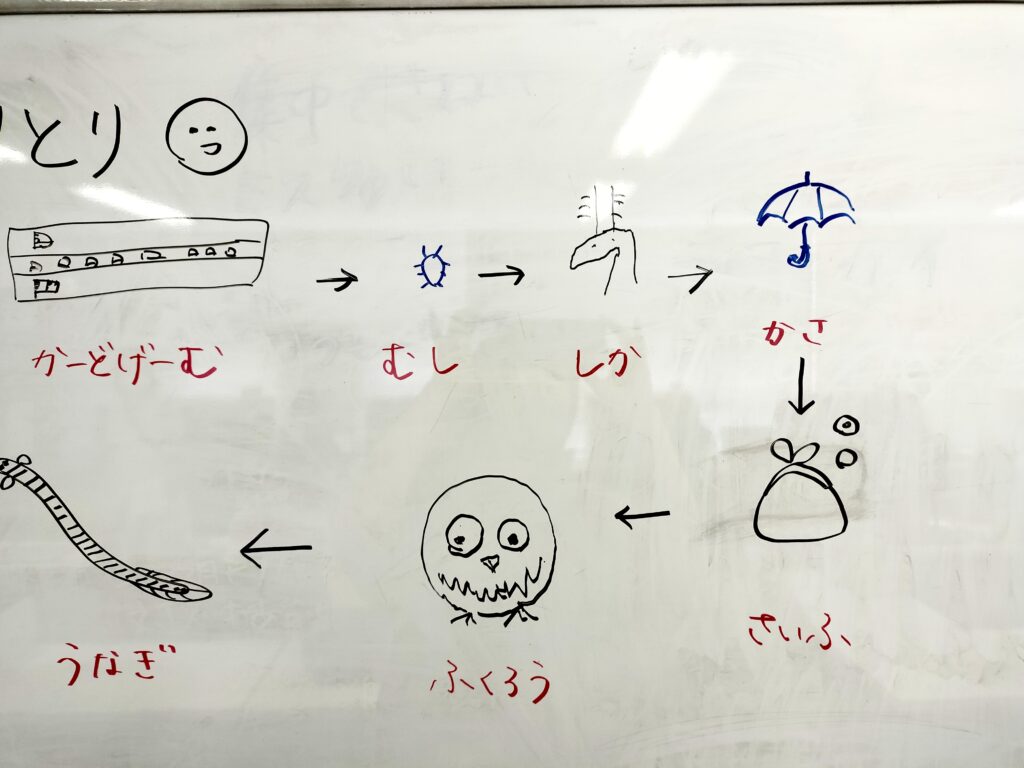 とり
かーどげーむ
むし
しか
かさ
さいふ
ふくろう
うなぎ